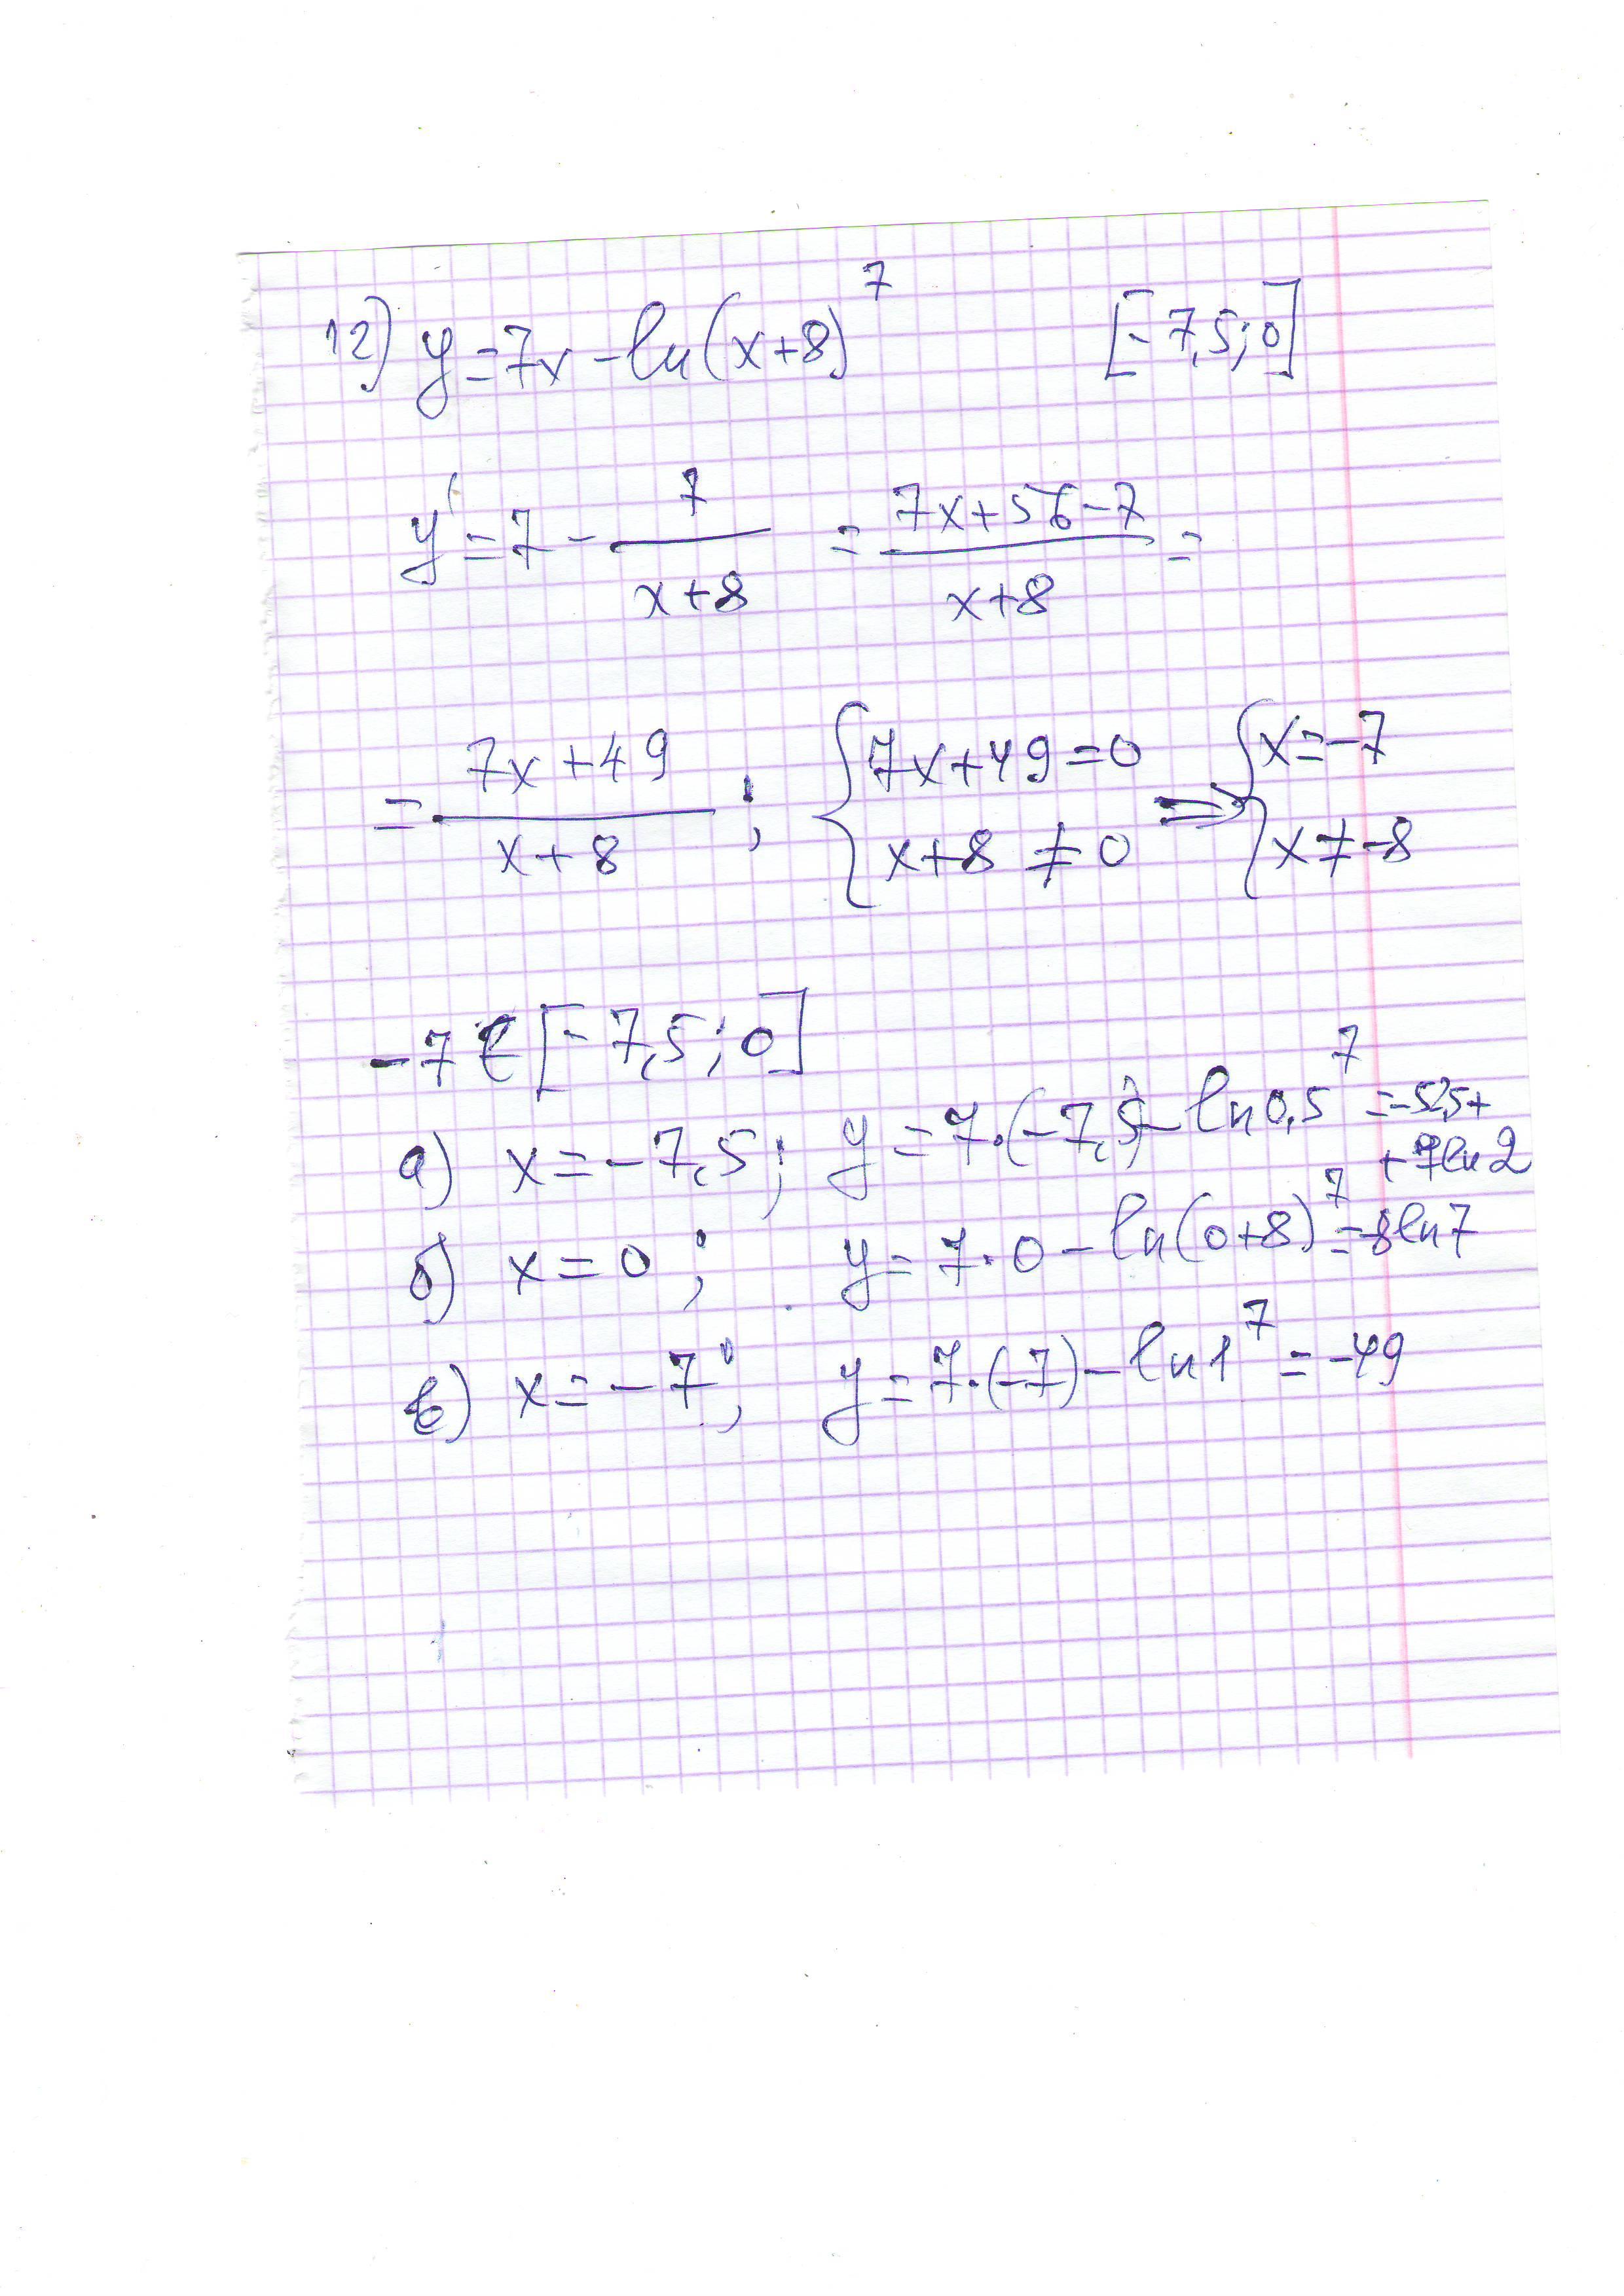 12) y=7x-ln(x+8)^7 [-7,5;0]
y'=7-7/(x+8) = (7x+56-7)/(x+8) =
= (7x+49)/(x+8) ; {7x+49=0 x+8≠0 => {x=-7 x≠-8
-7 ∈ [-7,5;0]
а) x=-7,5; y=7·(-7,5)-ln0,5^7 =-52,5+
+7ln2
б) x=0; y=7·0-ln(0+8)^7=-8ln7
в) x=-7; y=7·(-7)-ln1^7=-49